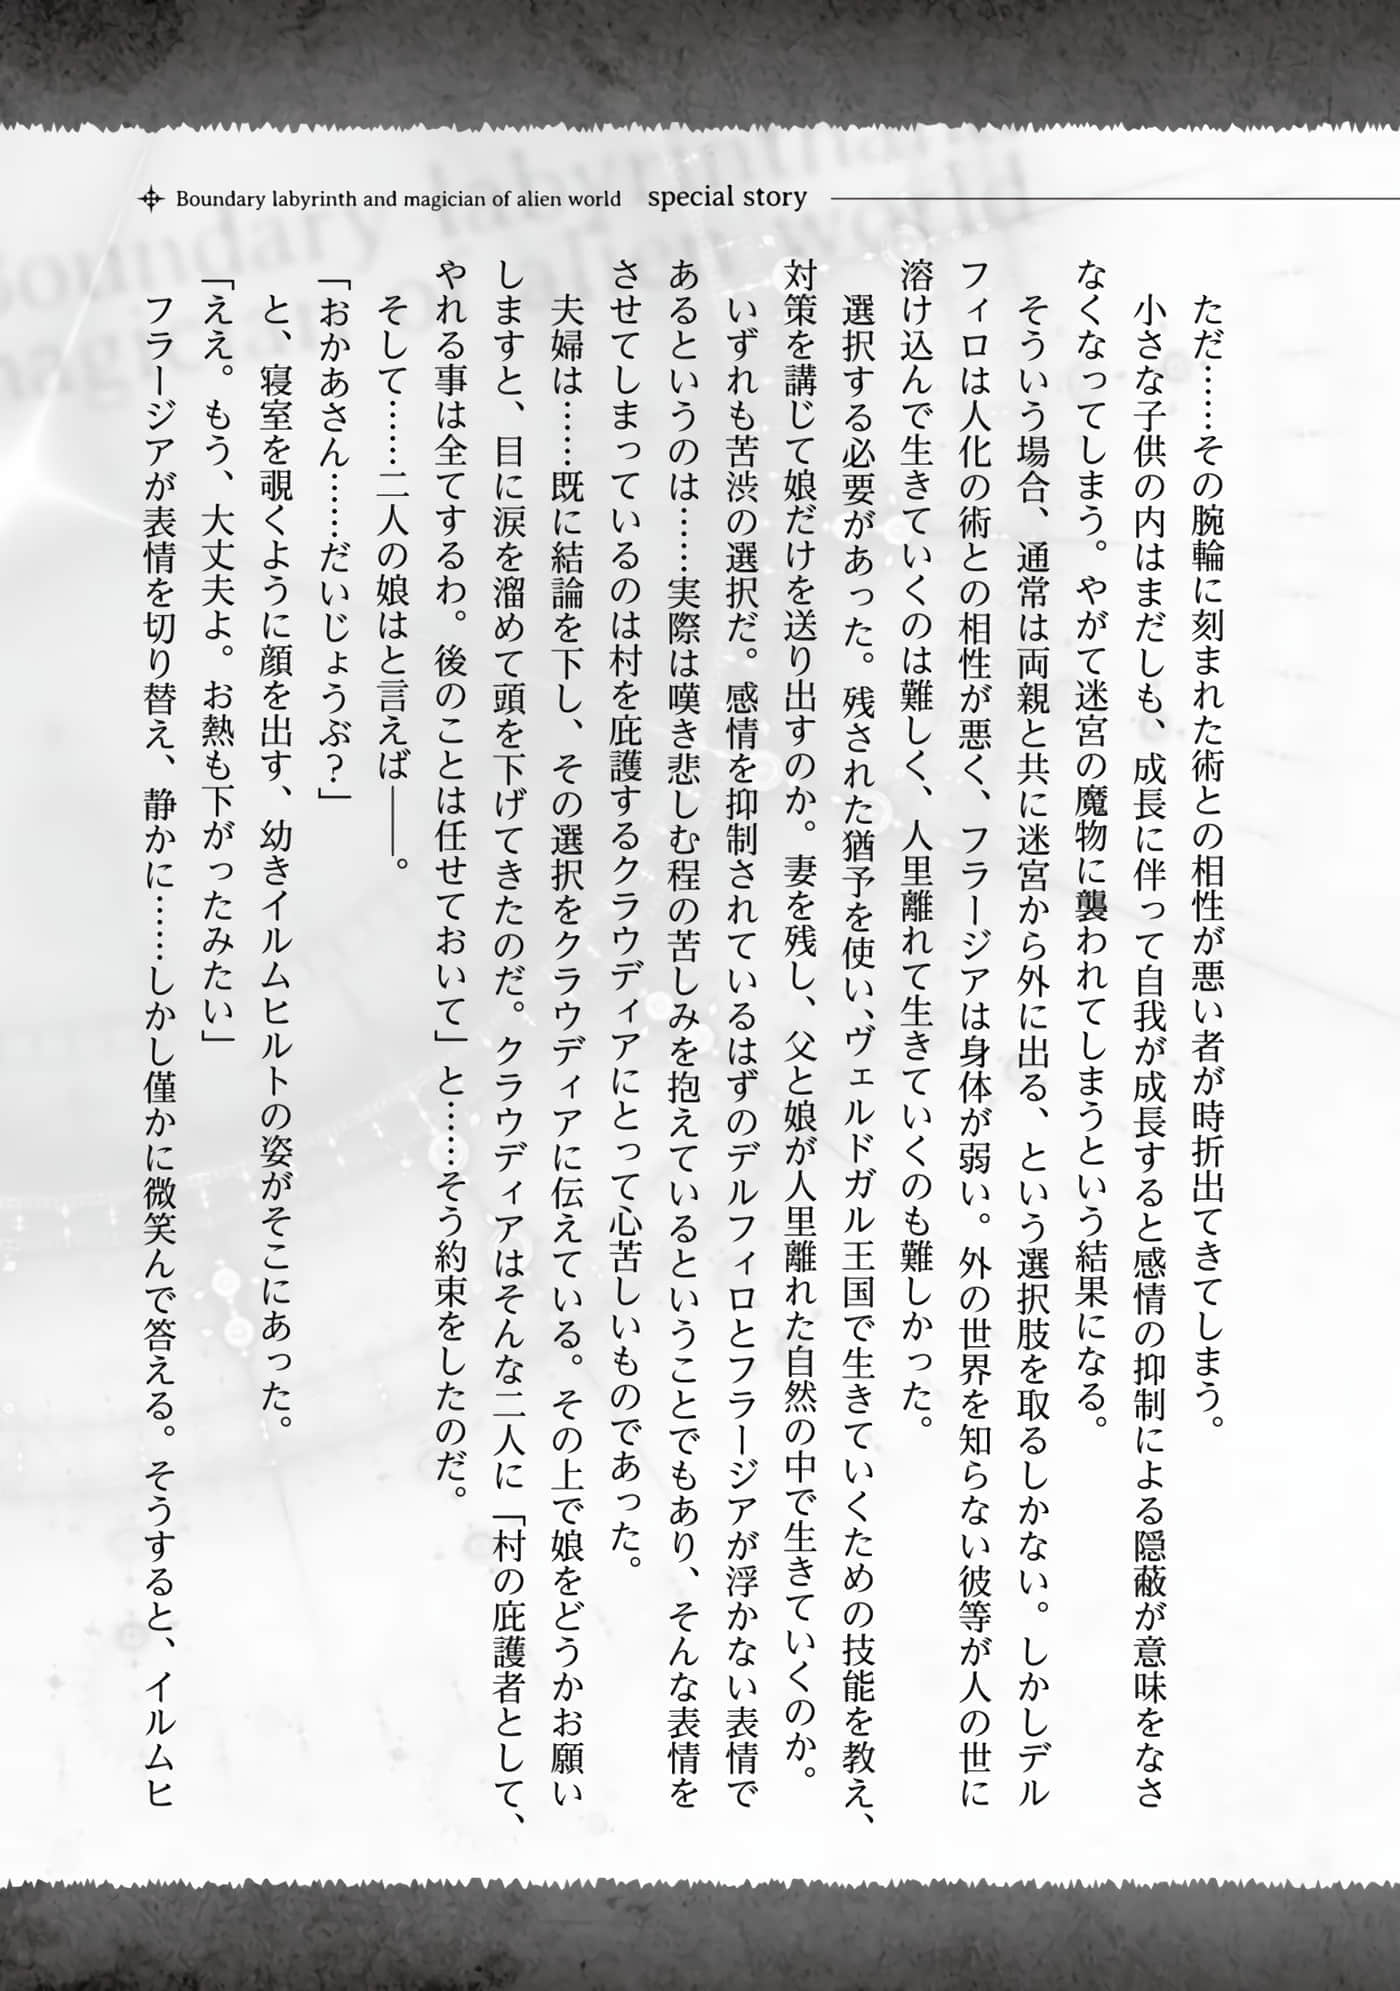 Boundary labyrinth and magician of alien world special story
ただ……その腕輪に刻まれた術との相性が悪い者が時折出てきてしまう。
小さな子供の内はまだしも、成長に伴って自我が成長すると感情の抑制による隠蔽が意味をなさ
なくなってしまう。やがて迷宮の魔物に襲われてしまうという結果になる。
そういう場合、通常は両親と共に迷宮から外に出る、という選択肢を取るしかない。しかしデル
フィロは人化の術との相性が悪く、フラージアは身体が弱い。外の世界を知らない彼等が人の世に
溶け込んで生きていくのは難しく、人里離れて生きていくのも難しかった。
選択する必要があった。残された猶予を使い、ヴェルドガル王国で生きていくための技能を教え、
対策を講じて娘だけを送り出すのか。妻を残し、父と娘が人里離れた自然の中で生きていくのか。
いずれも苦渋の選択だ。感情を抑制されているはずのデルフィロとフラージアが浮かない表情で
あるというのは……実際は嘆き悲しむ程の苦しみを抱えているということでもあり、そんな表情を
させてしまっているのは村を庇護するクラウディアにとって心苦しいものであった。
夫婦は……既に結論を下し、その選択をクラウディアに伝えている。その上で娘をどうかお願い
しますと、目に涙を溜めて頭を下げてきたのだ。クラウディアはそんな二人に「村の庇護者として、
やれる事は全てするわ。後のことは任せておいて」と……そう約束をしたのだ。
そして……二人の娘はと言えば――。
「おかあさん……だいじょうぶ?」
と、寝室を覗くように顔を出す、幼きイルムヒルトの姿がそこにあった。
「ええ。もう、大丈夫よ。お熱も下がったみたい」
フラージアが表情を切り替え、静かに……しかし僅かに微笑んで答える。そうすると、イルムヒ
Boundary labyrinth
magician of alien world